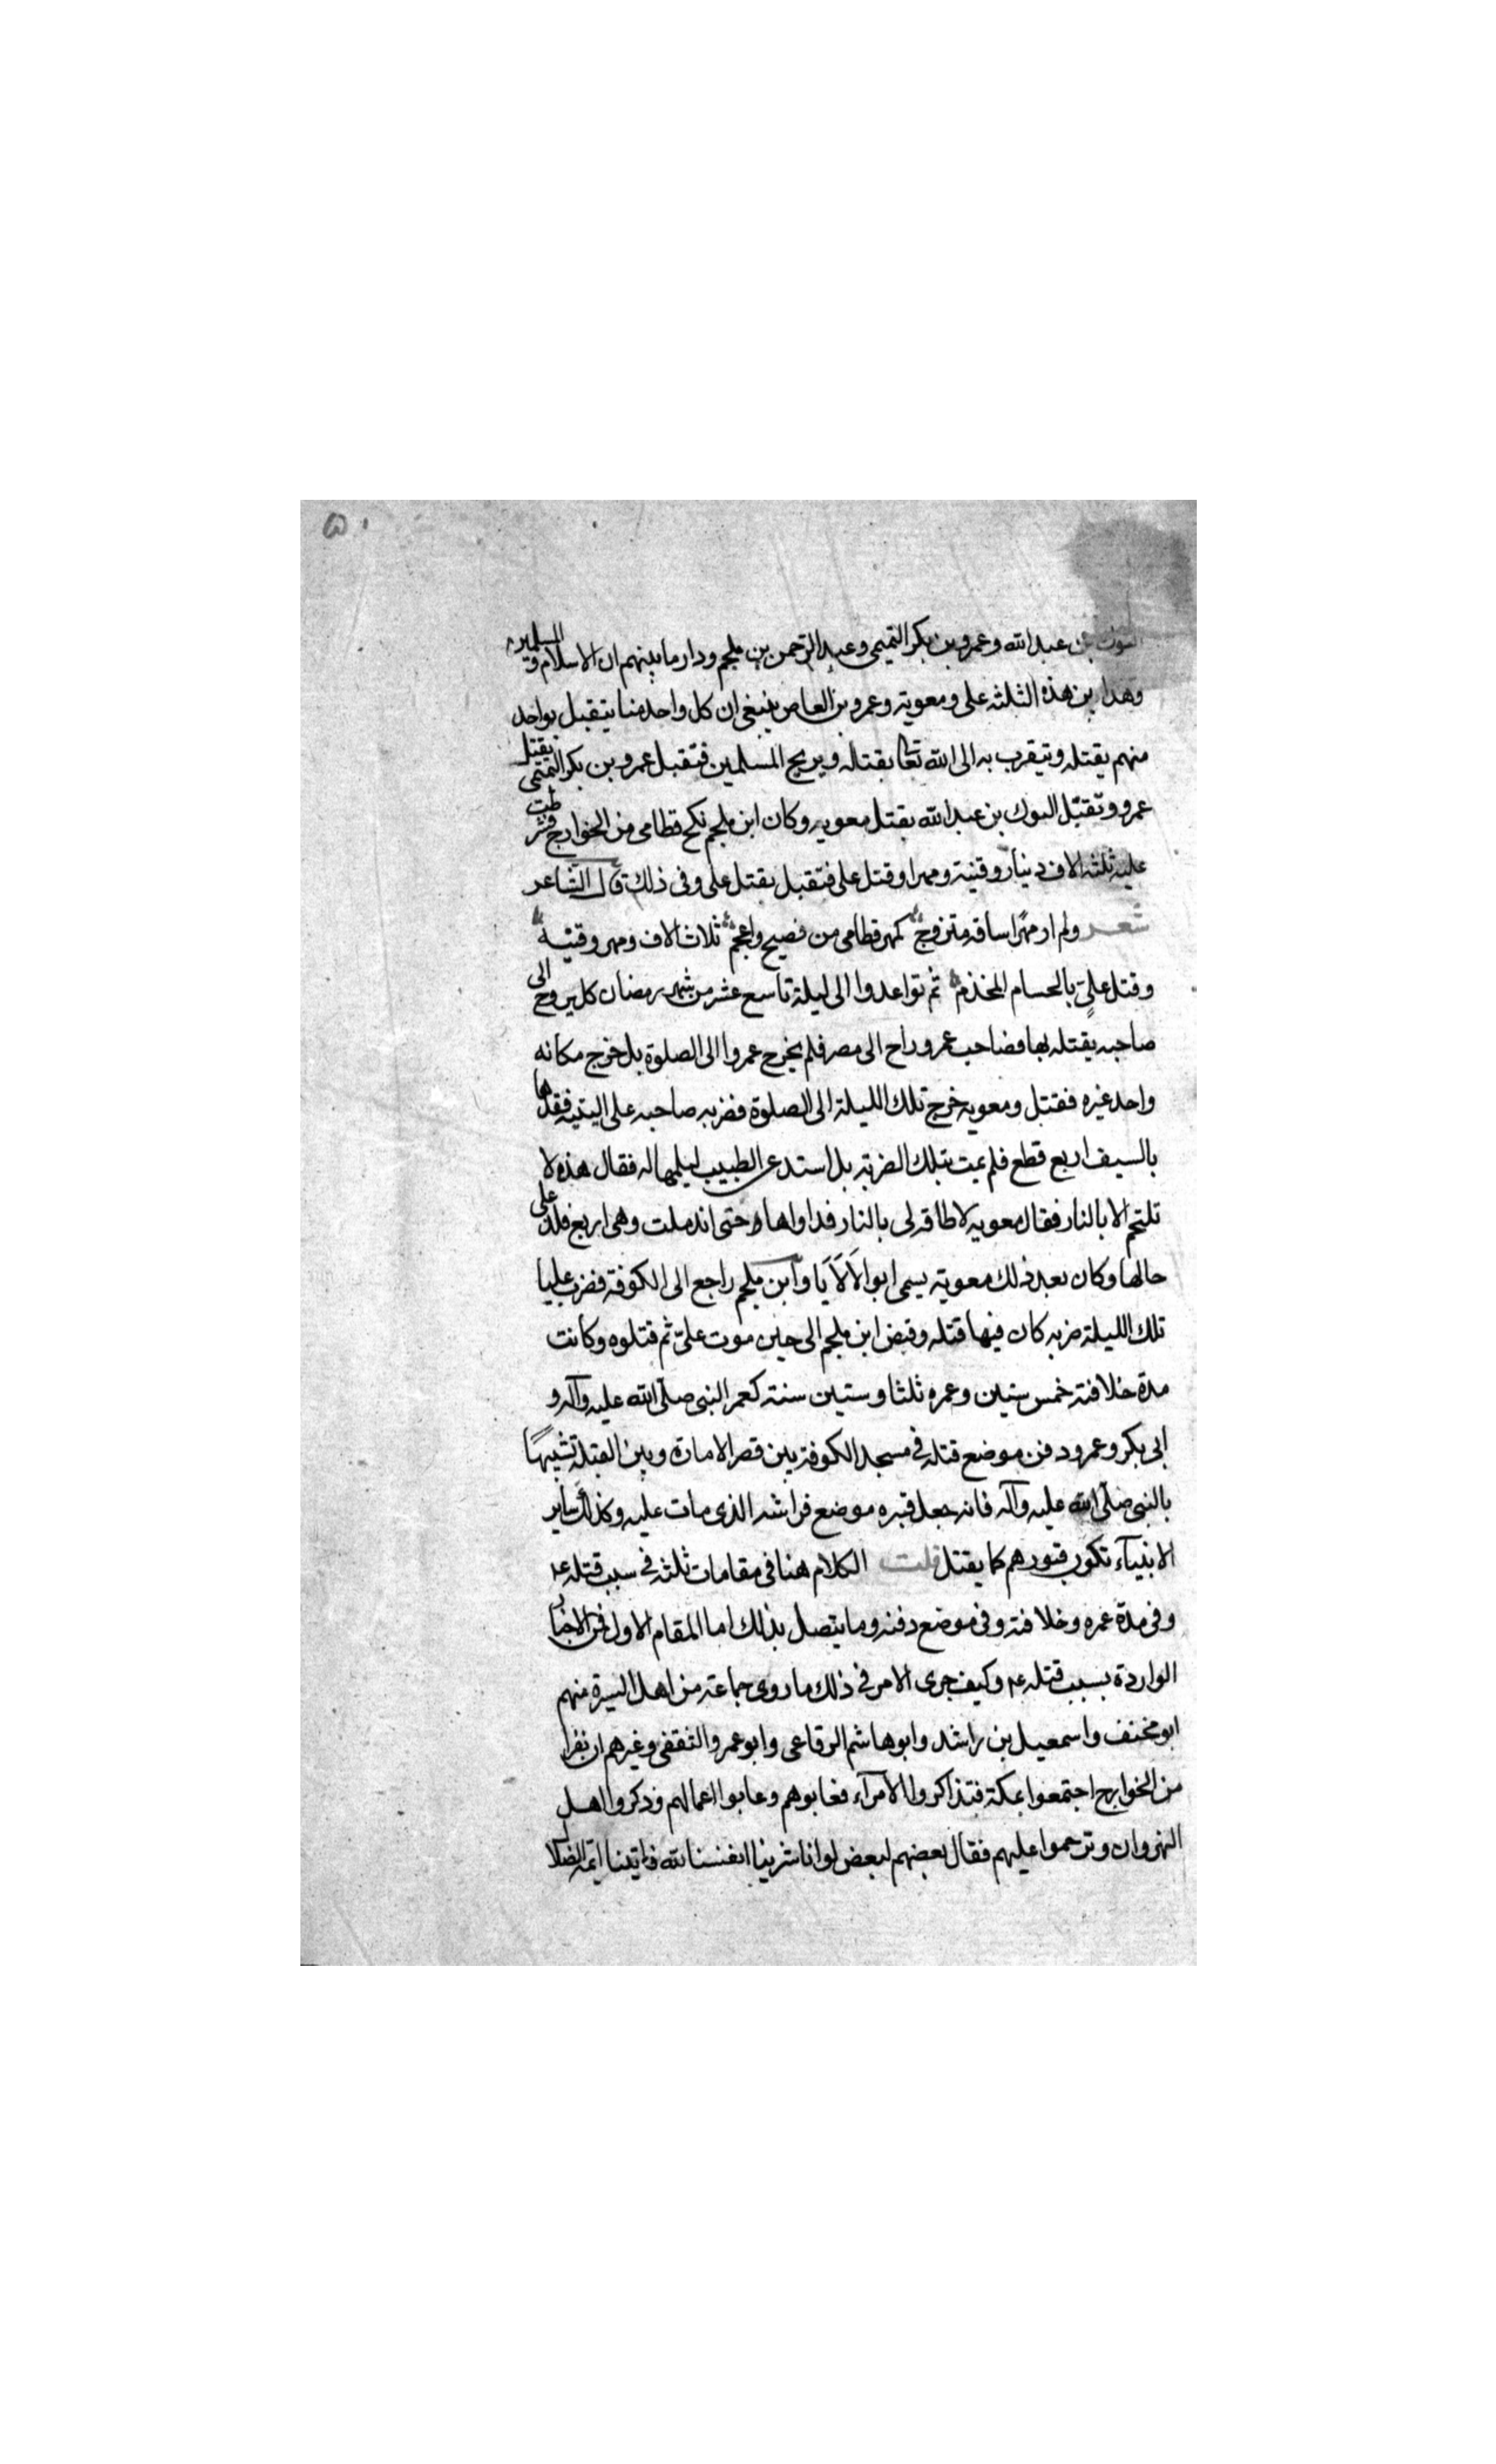 ٥٠
بن عبد الله وعمرو بن بكر التميمى وعبد الرحمن بن ملجم ودار ما بينهم ان الاسلام و المسلمين
بين هذه الثلثه على ومعوية وعمرو بن العاص ينبغى ان كل واحد منا يتقبل بواحد
منهم يقتله ويتقرب به الى الله تعا بقتاله ويريح المسلمين فتقبل عمرو بن بكر التميمى بقتل
عمرو وتقبّل البوك بن عبد الله بقتل معويه وكان ابن ملجم نكح قطامى من الخوارج فشرطت
عليه ثلثه الاف دينار وقنية ومهرا وقتل على فتقبل بقتل على وفى ذلك قال الشاعر
شعر ولم ار مهرًا ساقه متزوج كمهر قطامى من فصيح واعجم ثلاث الاف ومهر وقنيه
وقتل علىٍ بالحسام المخذم ثم تواعدوا الى ليلة تاسع عشر من شهر رمضان كل يروح الى
صاحبه يقتله بها فصاحب عمرو راح الى مصر فلم يخرج عمروا الى الصلوة بل خرج مكانه
واحد غيره فقتل ومعويه خرج تلك الليلة الى الصلوة فضربه صاحبه على اليتيه فقدها
بالسيف اربع قطع فلم يمت بتلك الضربة بل استدعى الطبيب ليلمها له فقال هذه لا
تلتحم الا بالنار فقال معويه لا طاقه لى بالنار فداواها حتى اندملت وهى اربع فلذ على
حالها وكان بعد ذلك معوية يسمى ابو الالايا وابن ملجم راجع الى الكوفة فضرب عليا
تلك الليلة ضربه كان فيها قتله وقبض ابن ملجم الى حين موت علىّ ثم قتلوه وكانت
مدة خلافته خمس سنين وعمره ثلثا وستين سنة كعمر النبى صلّى الله عليه وآله و
ابى بكر وعمر ودفن موضع قتله فى مسجد الكوفة بين قصر الامارة وبين القبلة تشبيهًا
بالنبى صلّى الله عليه وآله فانه جعل قبره موضع فراشه الذى مات عليه وكذلك ساير
الانبيآء تكون قبورهم كما يقتل قلت الكلام هنا فى مقامات ثلثه فى سبب قتله ع
وفى مدة عمره وخلافته وفى موضع دفنه وما يتصل بذلك اما المقام الاول فمن الاخبار
الواردة بسبب قتله ع وكيف جرى الامر فى ذلك ما روى جماعة من اهل السيرة منهم
ابو مخنف واسمعيل بن راشد وابو هاشم الرفاعى وابو عمرو الثقفى وغيرهم ان نفرا
من الخوارج اجتمعوا بمكة فتذاكروا الامرآء فعابوهم وعابوا اعمالهم وذكروا اهل
النهروان وترحموا عليهم فقال بعضهم لبعض لو انا شرينا انفسنا لله فاتينا ائمة الضلال